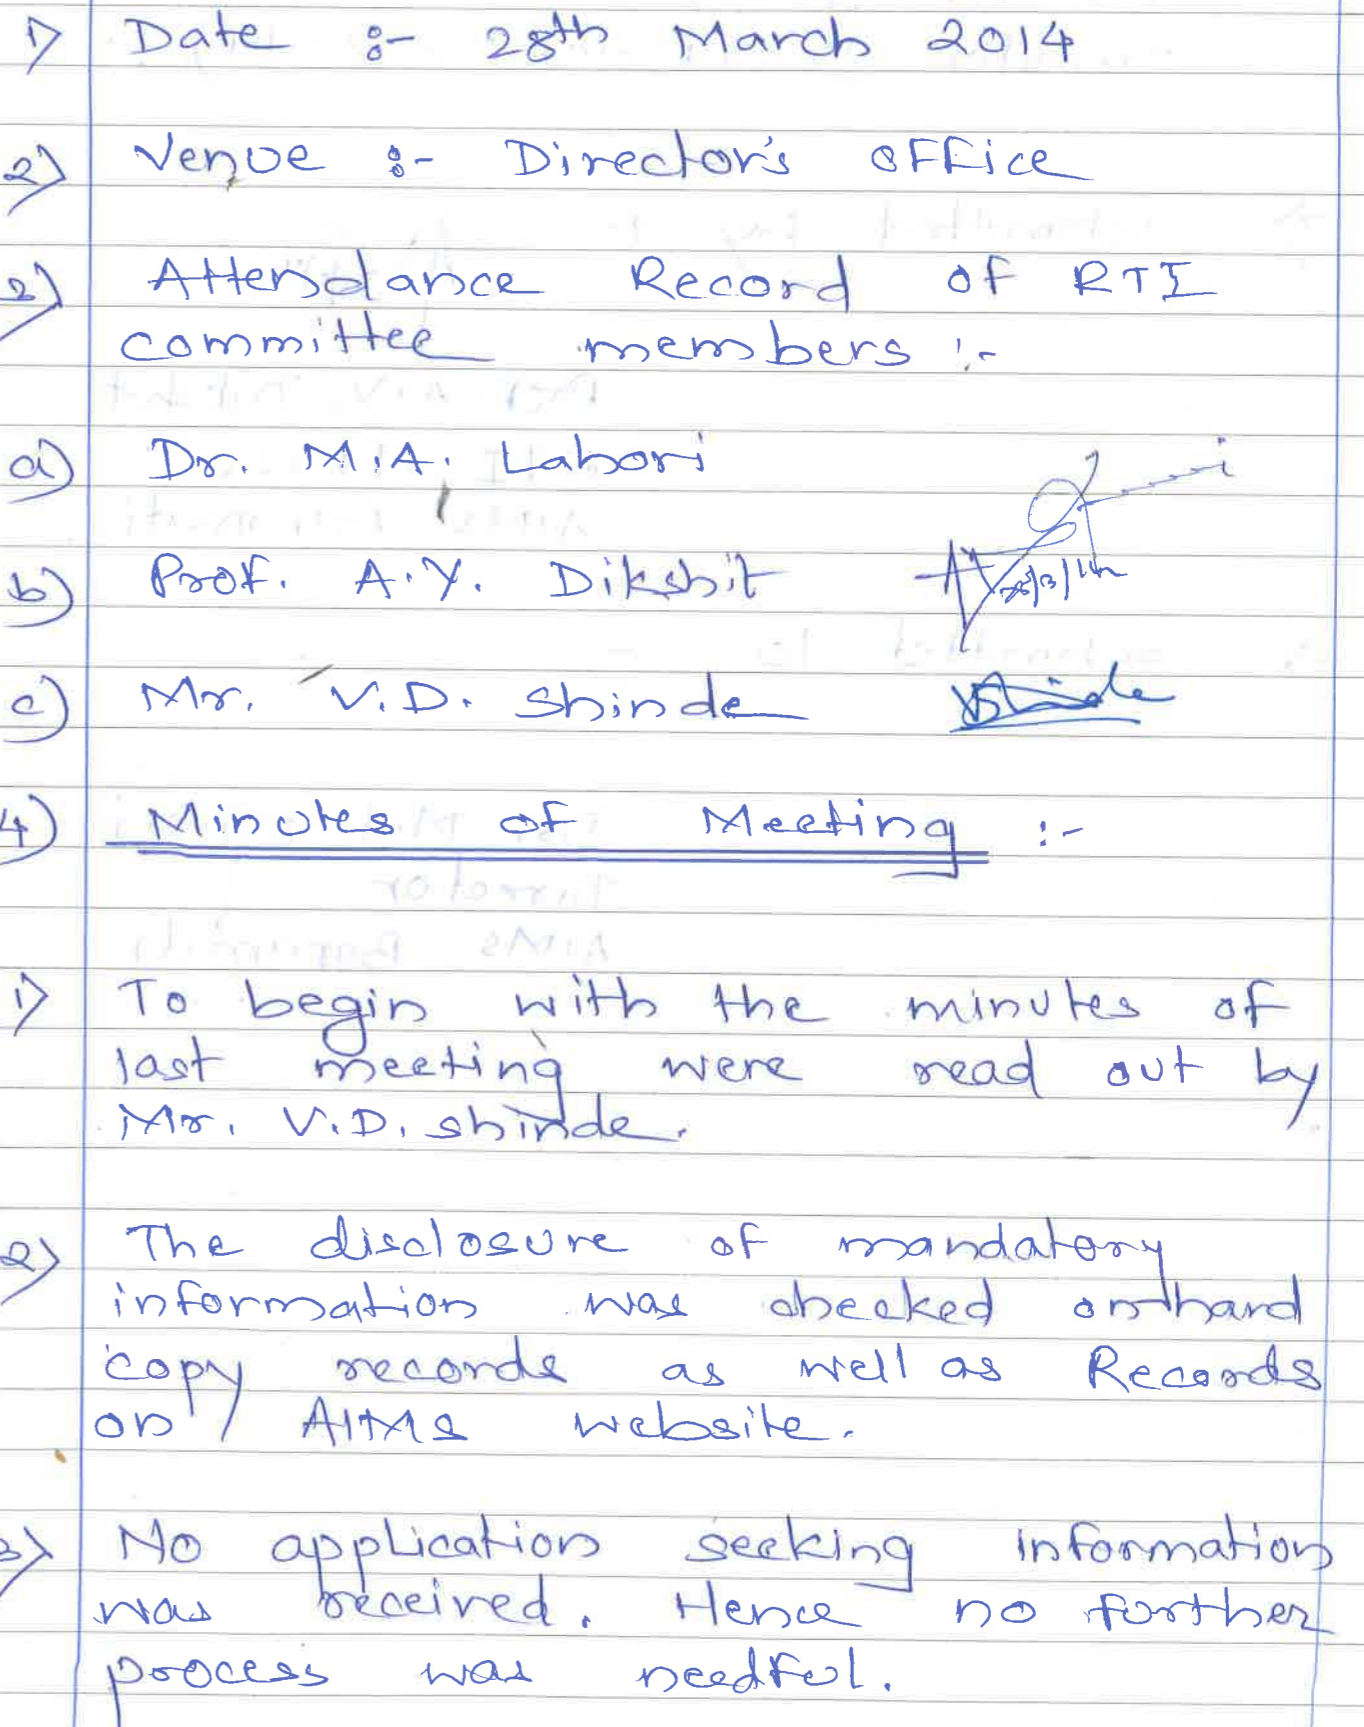 1) Date :- 28th March 2014
2) Venue :- Director's office
2) Attendance Record of RTI
committee members :-
a) Dr. M.A. Lahori
b) Prof. A.Y. Dikshit 28/3/14
c) Mr. V.D. Shinde VShinde
4) Minutes of Meeting :-
1) To begin with the minutes of
last meeting were read out by
Mr. V.D. shinde.
2) The disclosure of mandatory
information was checked on hard
copy records as well as Records
on AIMS website.
3) No application seeking information
was received. Hence no further
process was needful.